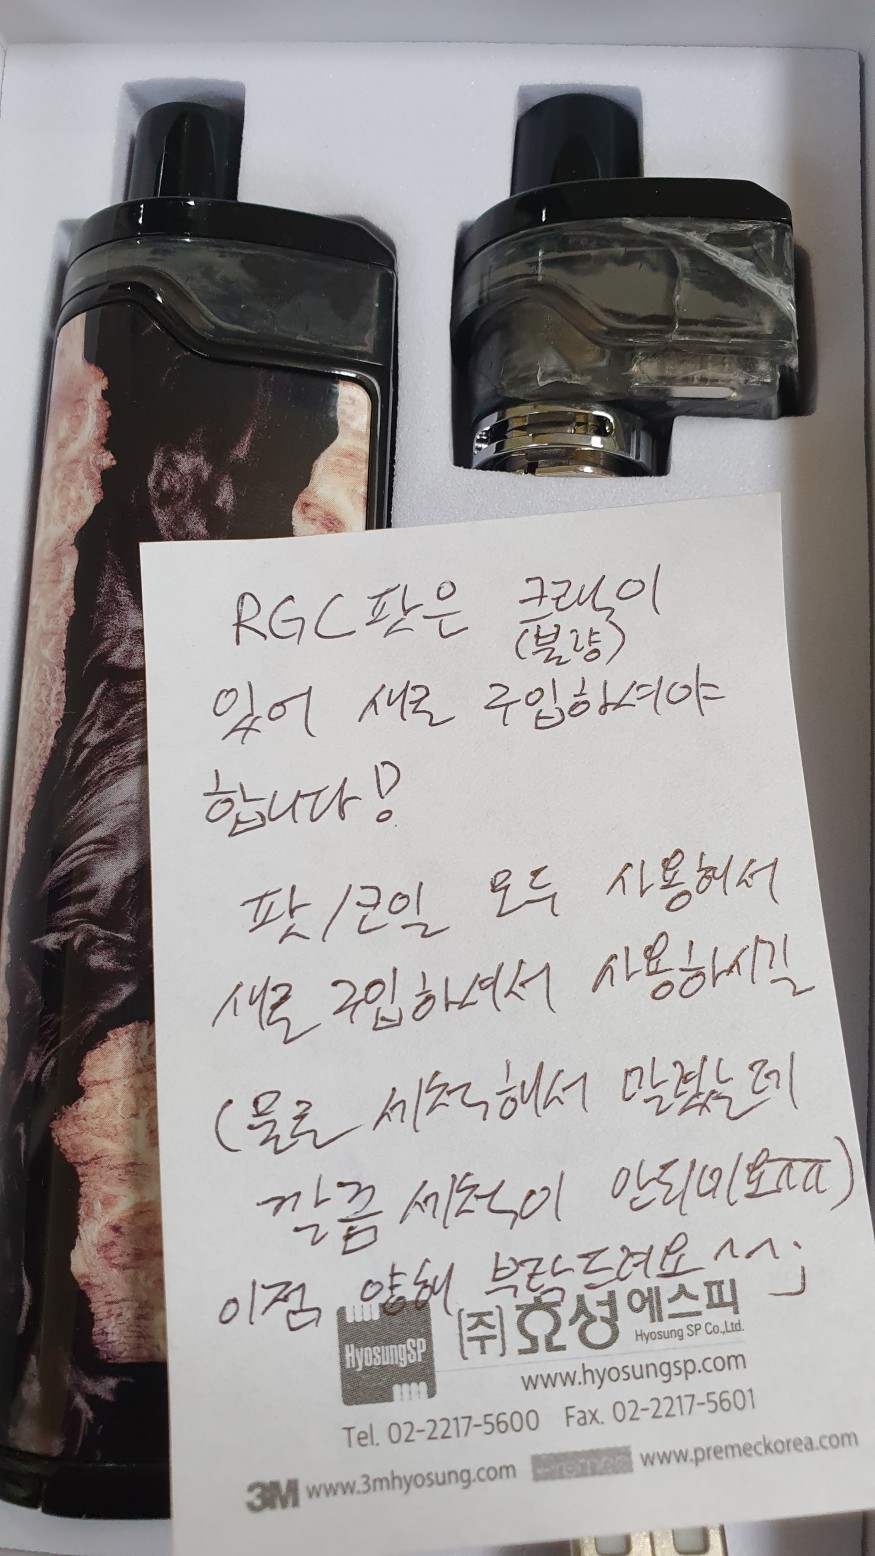 RGC 팟은 크랙이
(불량)
있어 새로 구입하셔야
합니다!
팟/코일 모두 사용해서
새로 구입하셔서 사용하시길
(물로 세척해서 말렸는데
깔끔 세척이 안되네요ㅠㅠ)
이점 양해 부탁드려요^^;
HyosungSP
(주)효성에스피
Hyosung SP Co.,Ltd.
www.hyosungsp.com
Tel. 02-2217-5600 Fax. 02-2217-5601
3M www.3mhyosung.com www.premeckorea.com